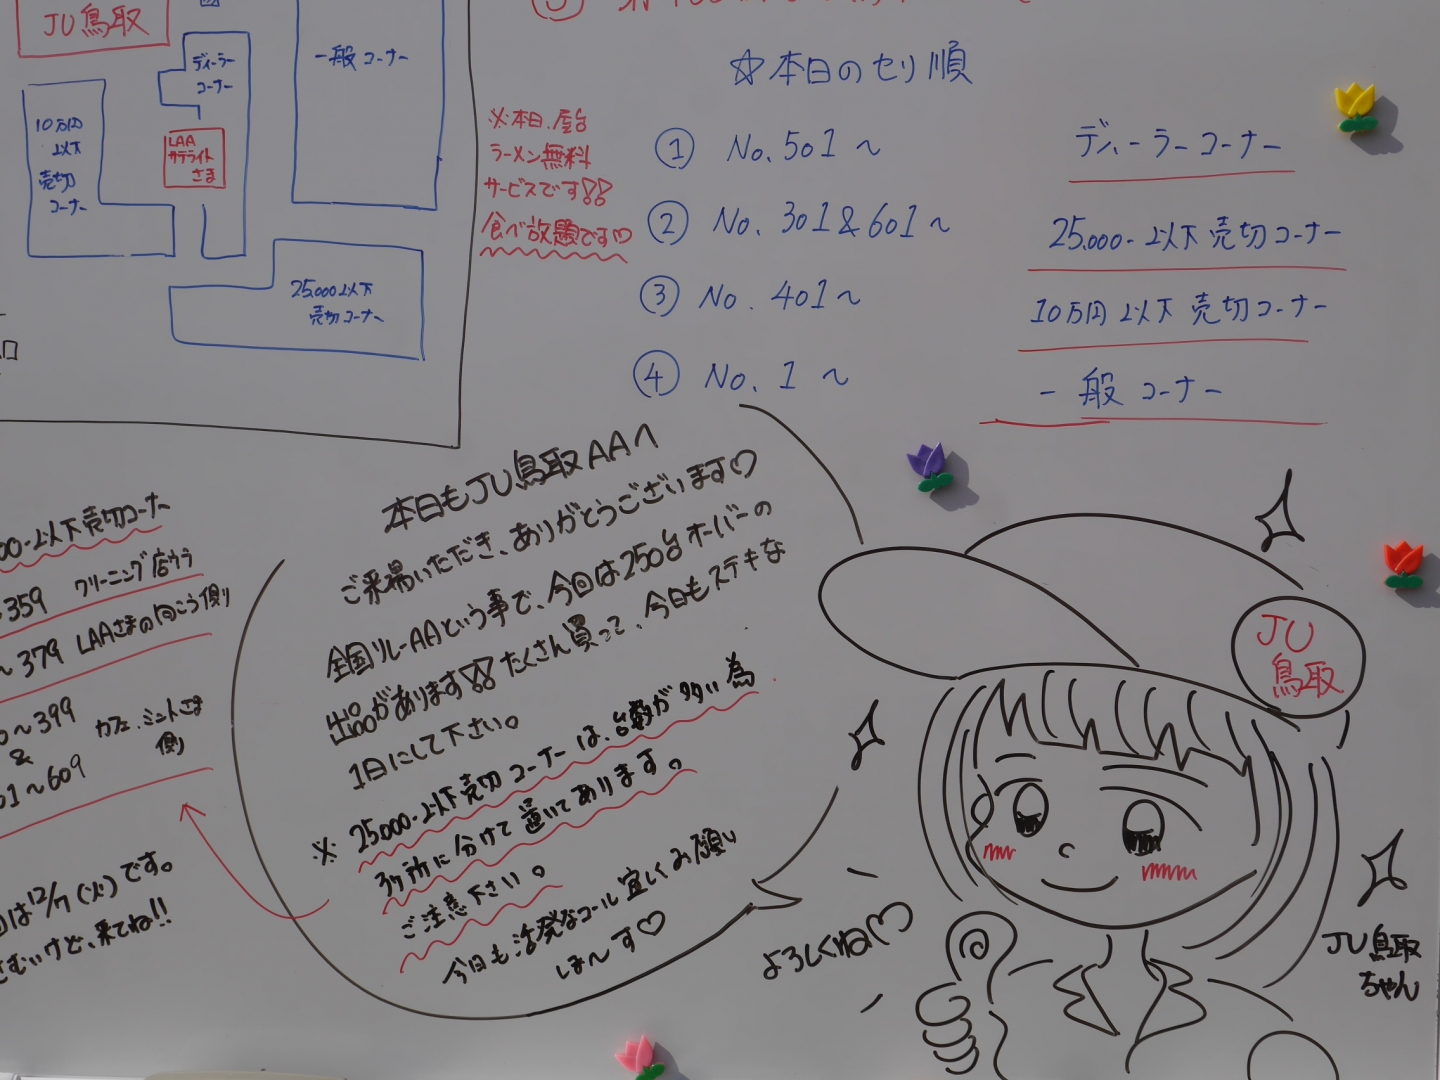 JU鳥取
ディーラー
コーナー
一般コーナー
10万円
以下
売切
コーナー
LAA
サテライト
さま
25,000以下
売切コーナー
☆本日のセリ順
※本日、屋台
ラーメン無料
サービスです!!
食べ放題です♡
① No.501～ ディーラーコーナー
② No.301&601～ 25,000-以下売切コーナー
③ No.401～ 10万円以下売切コーナー
④ No.1～ 一般コーナー
00-以下売切コーナー
359 クリーニング店ウラ
～379 LAAさまの向こう側
～399
&
01～609
カフェ.ミントさま
側
回は12/7(火)です。
さむいけど、来てね!!
本日もJU鳥取AAへ
ご来場いただき、ありがとうございます♡
全国リレーAAという事で、今回は250台オーバーの
出品があります!!たくさん買って、今日もステキな
1日にして下さい。
※25,000-以下売切コーナーは、台数が多い為
3ヶ所に分けて置いてあります。
ご注意下さい。
今日も活発なコール宜しくお願い
しま～す♡
よろしくね♡
JU
鳥取
JU鳥取
ちゃん